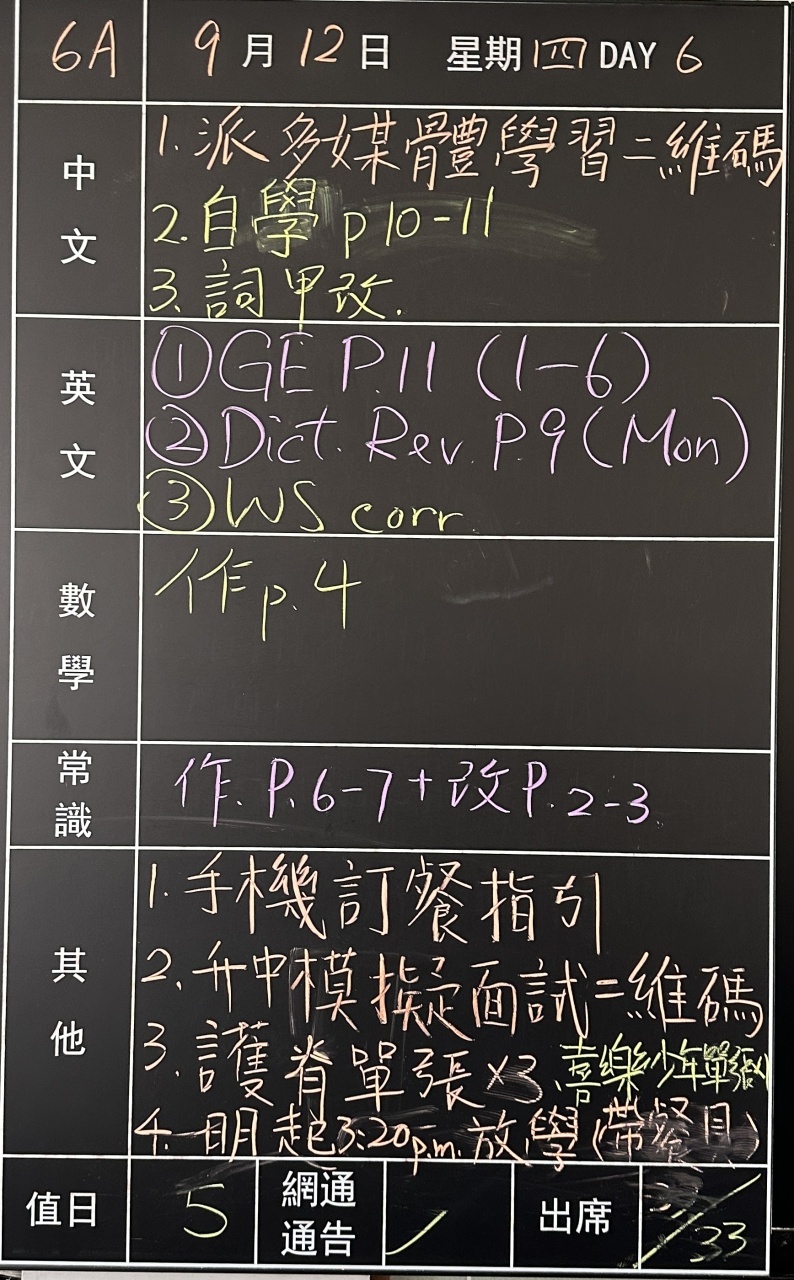 6A 9月12日 星期四 DAY 6
中文
1. 派多媒體學習二維碼
2. 自學 p10-11
3. 詞甲改.
英文
① GE P.11 (1-6)
② Dict. Rev. P.9 (Mon)
③ WS corr
數學
作 p.4
常識
作. P.6-7 + 改 P.2-3
其他
1. 手機訂餐指引
2. 升中模擬面試二維碼
3. 護脊單張 x3、喜樂少年單張x1
4. 明起3:20p.m.放學(帶餐具)
值日 5 網通通告 / 出席 /33